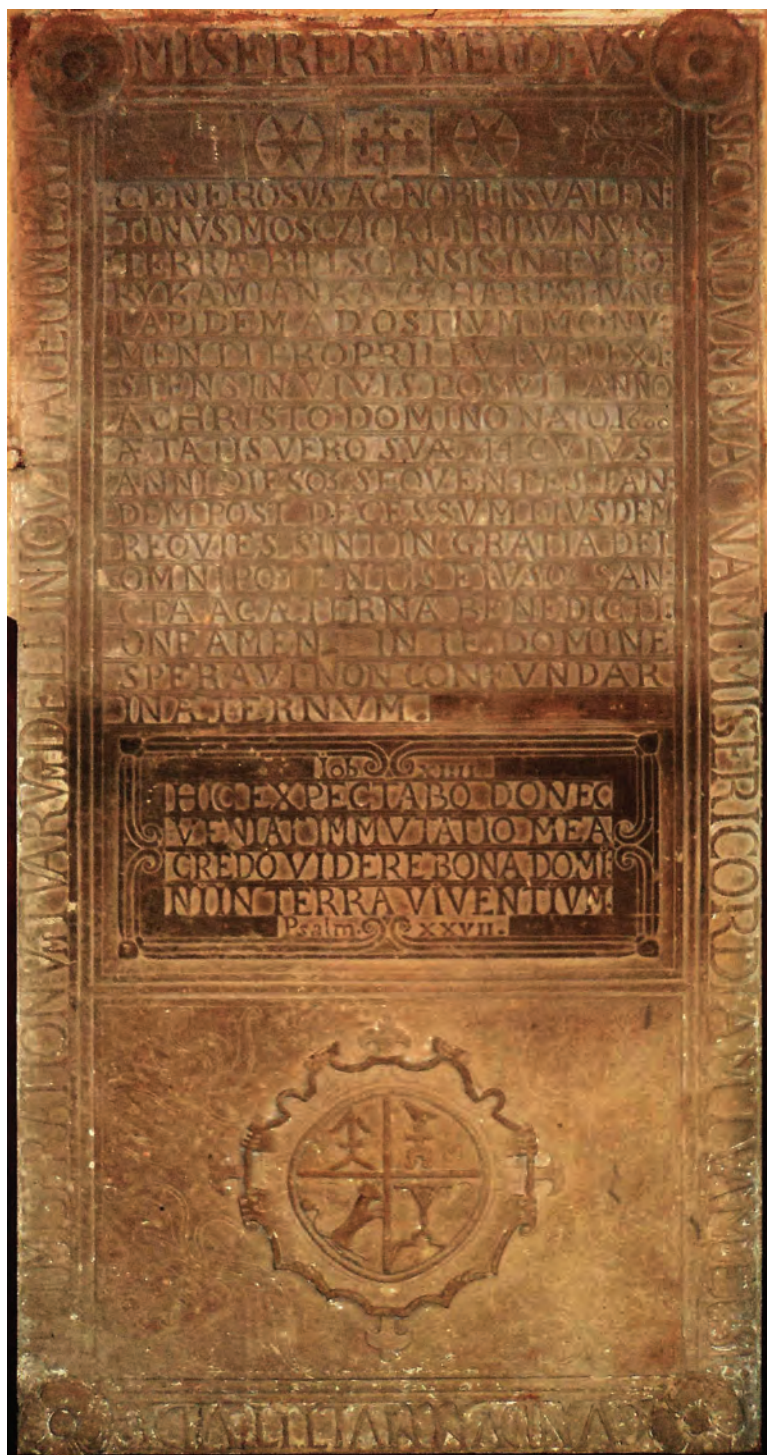 MISERERE MEI DEVS
SECVNDVM MAGNAM MISERICORDIAM TVAM ET SE
MISERATIONVM TVARVM DELE INIQVITATEM MEAM
GENEROSVS AC NOBILIS VALEN:
TINVS MOSCZICKI TRIBVNVS
TERRÆ BIELSCENSIS IN DVBO:
RYKAMIANKATG HÆRES HVNC
LAPIDEM AD OSTIVM MONV:
MENTI PROPRII FVTVRI EXI:
STENS IN VIVIS POSVIT ANNO
A CHRISTO DOMINO NATO 1600
ÆTATIS VERO SVÆ CVIVS
ANNI DIES SEQVENTES TAN:
DEM POST DECESSVM EIVSDEM
REQVIES SINT IN GRATIA DEI
OMNIPOTENTIS EIVSQ SAN:
CTA AC ÆTERNA BENEDICTI:
ONE AMEN. IN TE DOMINE
SPERAVI NON CONFVNDAR
IN ÆTERNVM.
Iob XIIII
HIC EXPECTABO DONEC
VENIAT IMMVTATIO MEA
CREDO VIDERE BONA DOMI:
NI IN TERRA VIVENTIVM.
Psalm. XXVII.